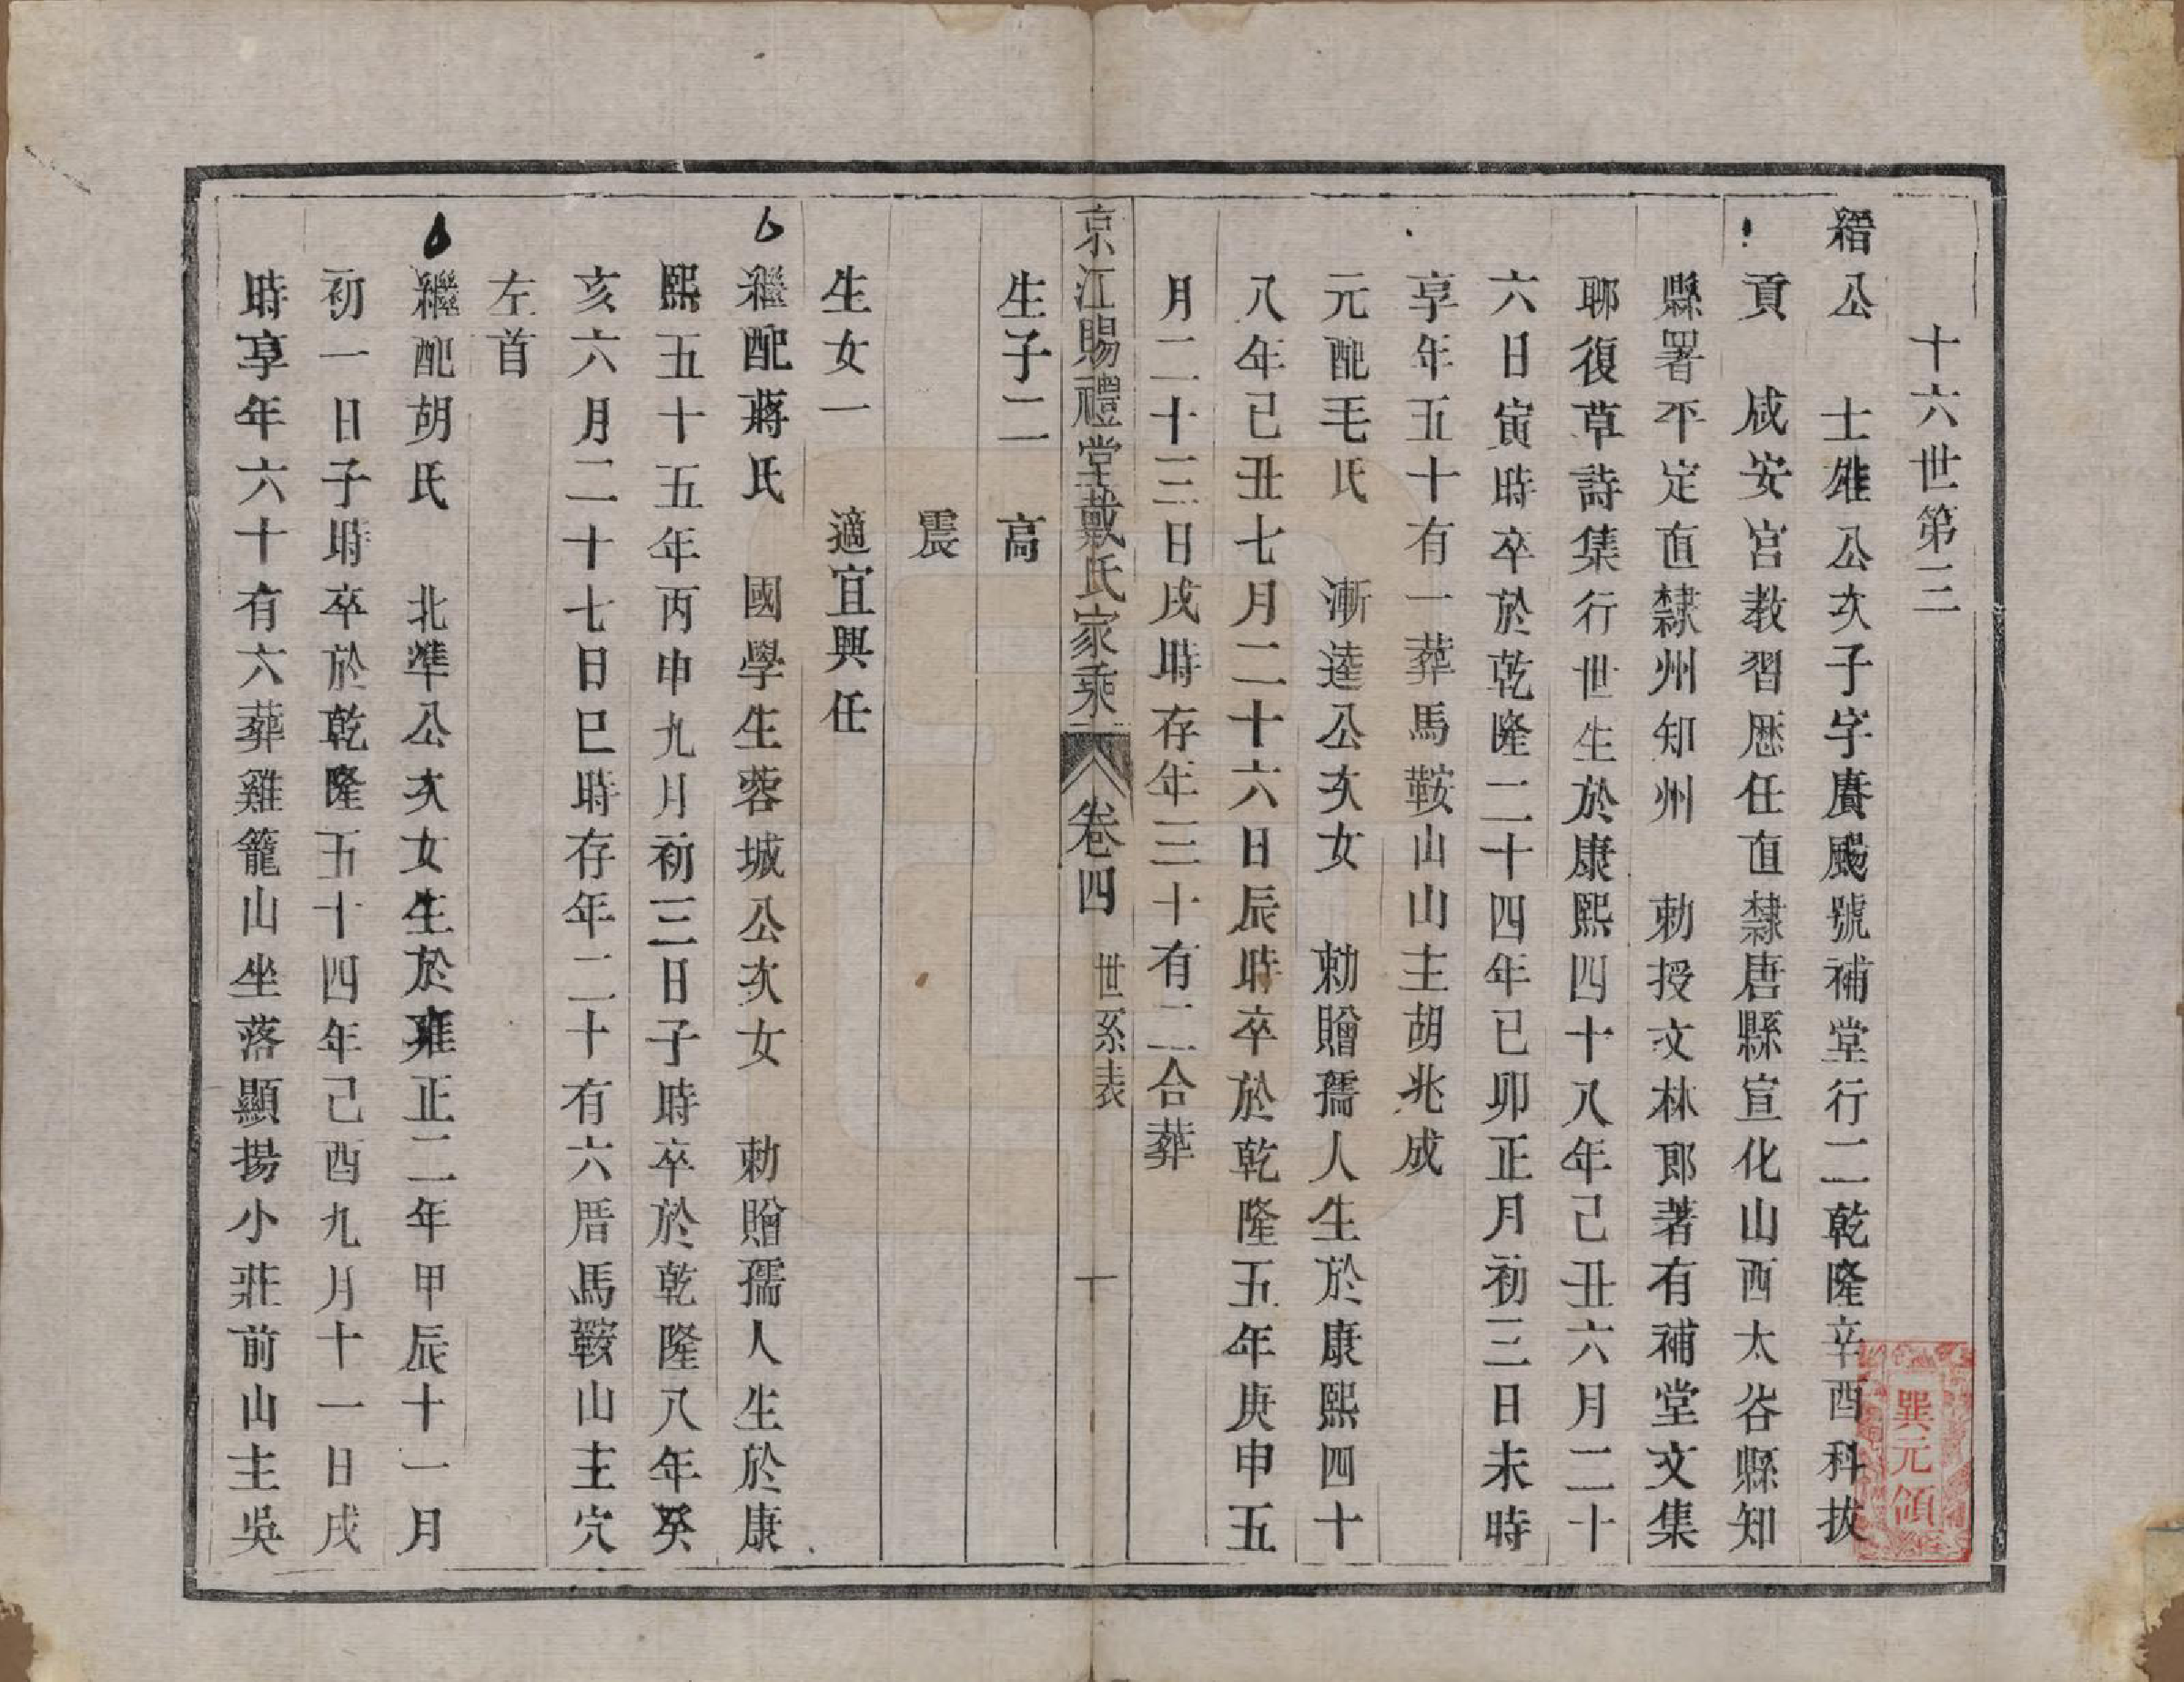 十六世第三
縉公　士雄公次子字賡颺號補堂行二乾隆辛酉科拔
貢　咸安宮教習歷任直隸唐縣宣化山西太谷縣知
縣署平定直隸州知州　勅授文林郎著有補堂文集
聊復草詩集行世生於康熙四十八年己丑六月二十
六日寅時卒於乾隆二十四年己卯正月初三日未時
享年五十有一葬馬鞍山山主胡兆成
元配毛氏　漸逵公次女　勅贈孺人生於康熙四十
八年己丑七月二十六日辰時卒於乾隆五年庚申五
月二十三日戌時存年三十有二合葬
生子二　高
京江賜禮堂戴氏家乘　卷四　世系表　十
震
生女一　適宜興任
繼配蔣氏　國學生蓉城公次女　勅贈孺人生於康
熙五十五年丙申九月初三日子時卒於乾隆八年癸
亥六月二十七日巳時存年二十有六厝馬鞍山主穴
左首
繼配胡氏　北準公次女生於雍正二年甲辰十一月
初一日子時卒於乾隆五十四年己酉九月十一日戌
時享年六十有六葬雞籠山坐落顯揚小莊前山主吳
巽元領